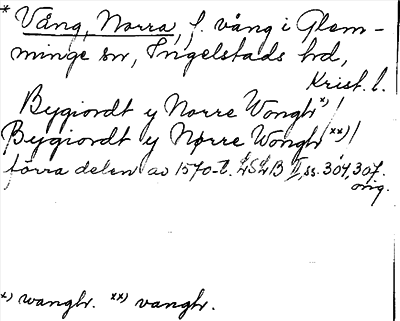 * Vång, Norra, f. vång i Glem-
minge sn, Ingelstads hd,
Krist. l.
Bygiordt y Norre Wongh *) /
Bygiordt y Nørre Wongh **) /
förra delen av 1570-t. LSLB II, ss. 304, 307.
orig.
*) wanghr. **) vanghr.